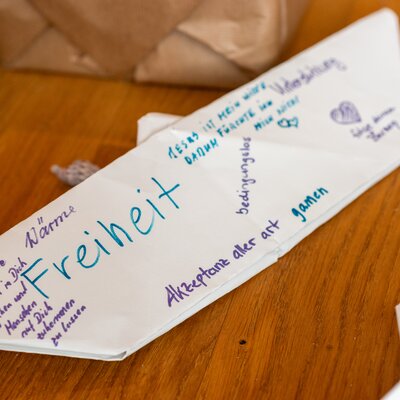 Unterstützung
JESUS IST MEIN HIRTE
DARUM FÜRCHTE ICH
MICH NICHT
bedingungslos
gamen
Akzeptanz aller art
Wärme
Freiheit
in Dich
und
Menschen
auf Dich
zukommen
zu lassen